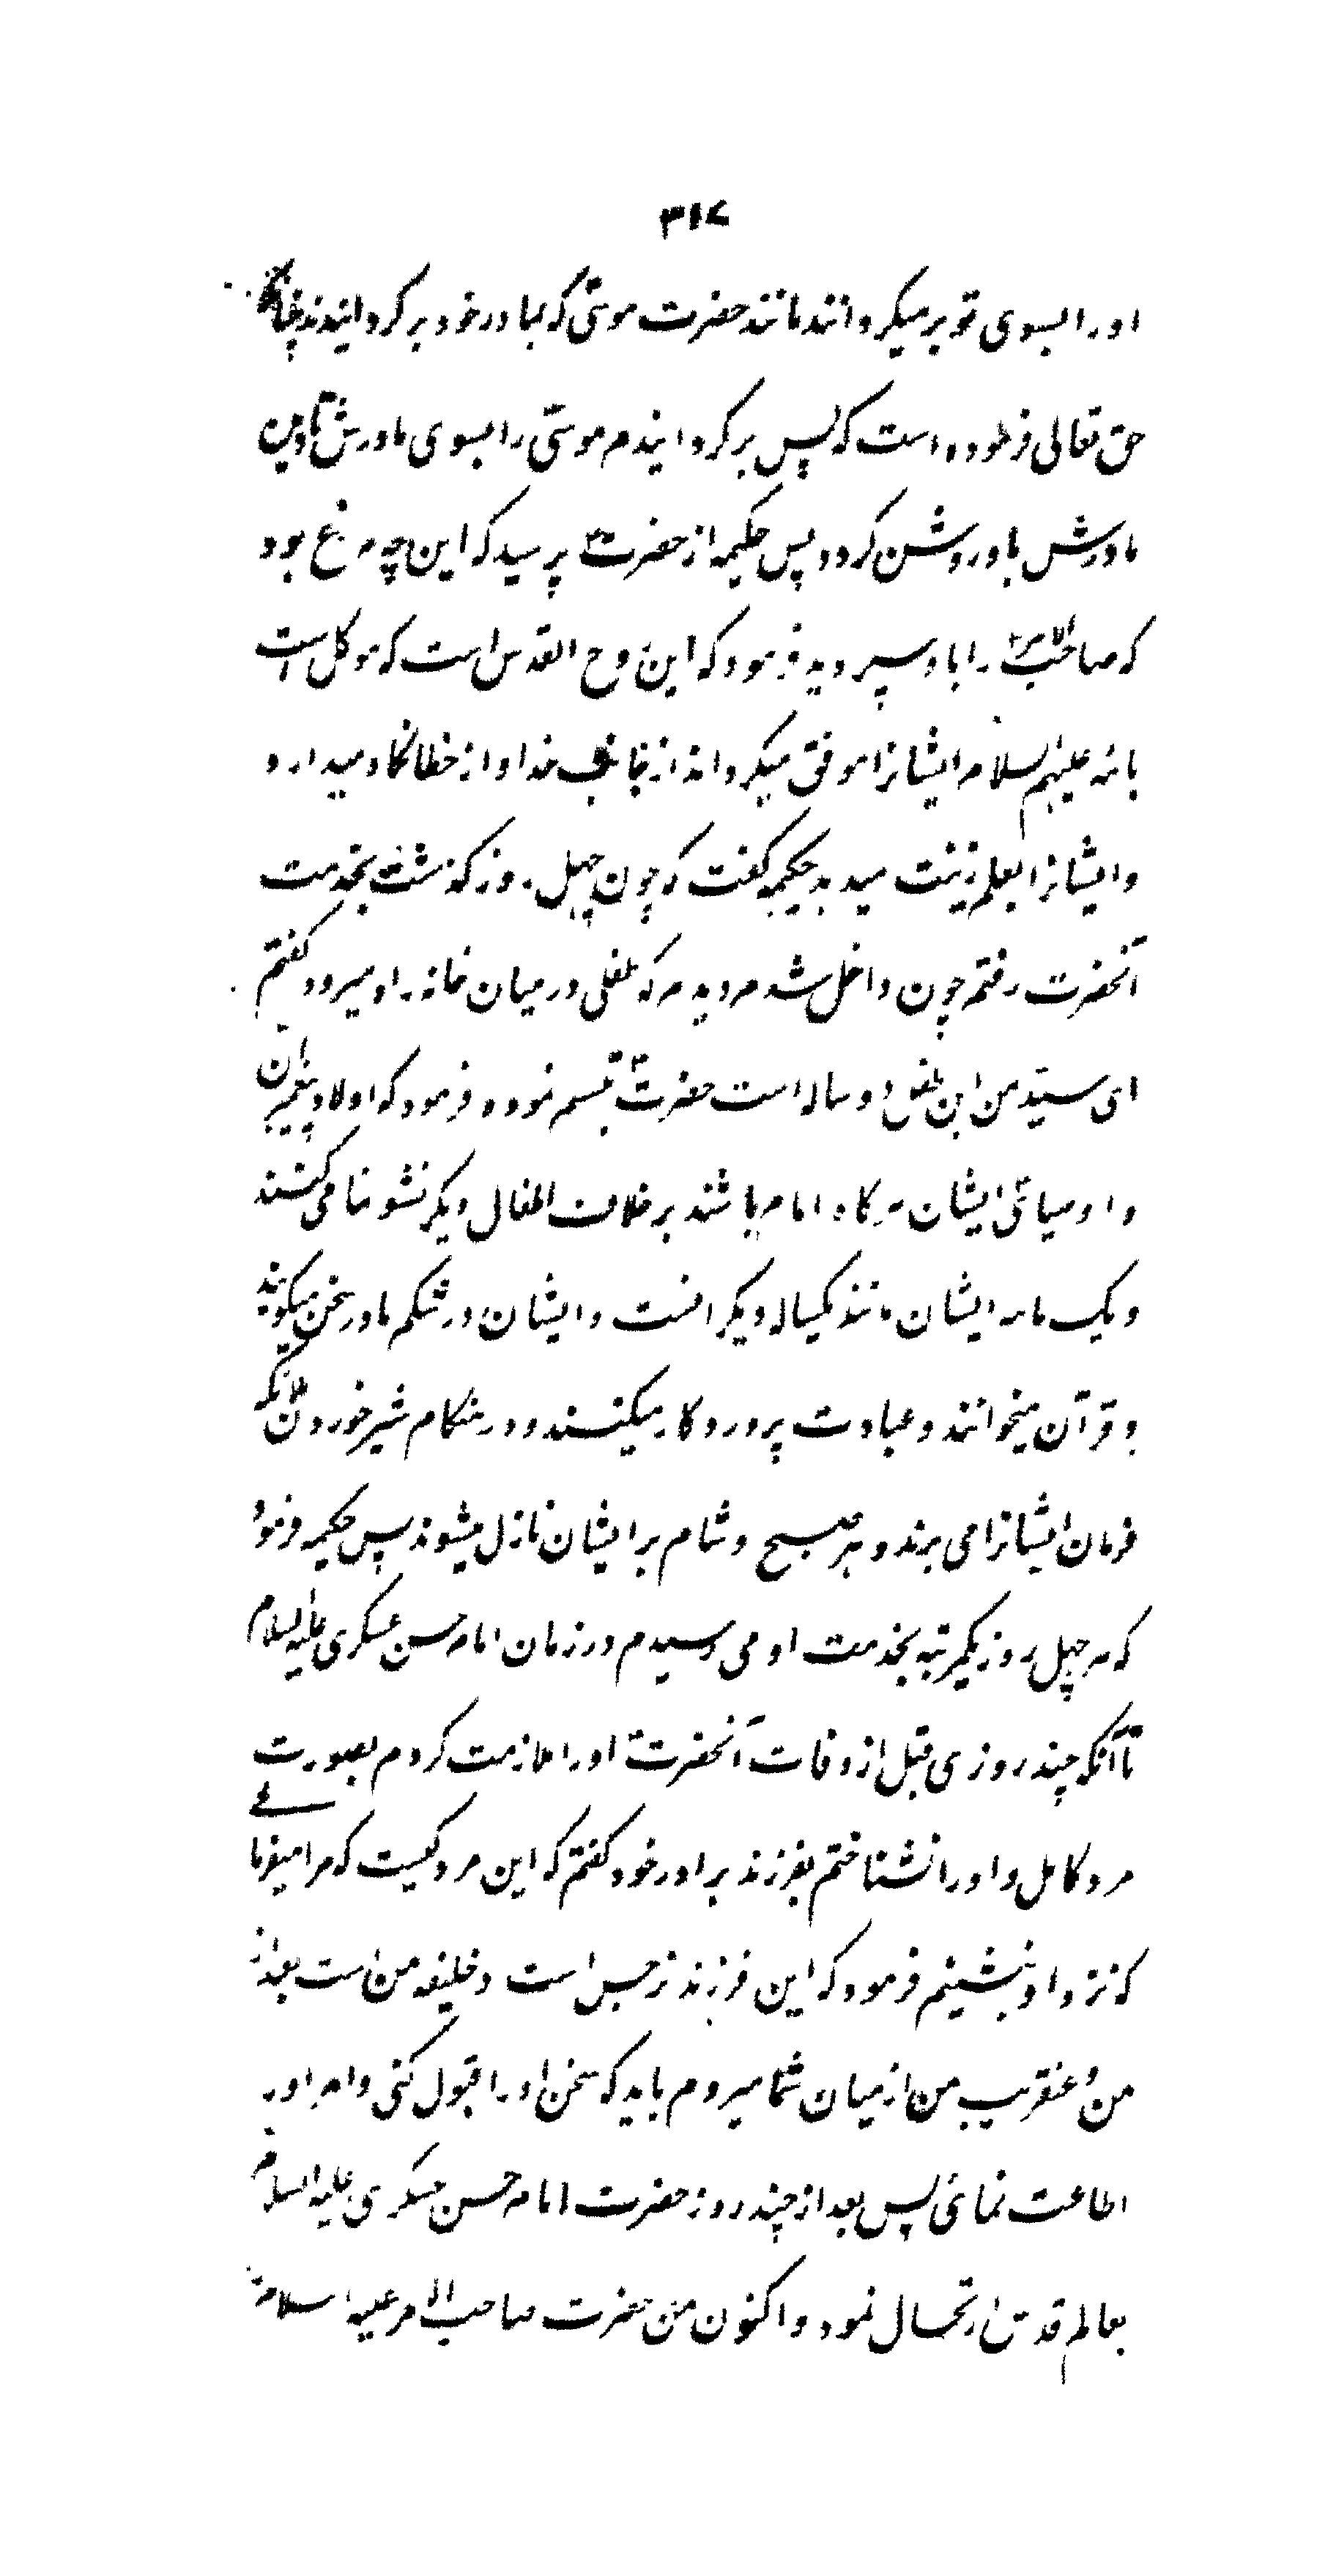 ۳۱۷
اورا بسوی تو برمیکردانند مانند حضرت موسیٰ که بمادر خود برکردانیدند چنانکه
حق تعالی فرموده است که پس برکردانیدم موسیٰ را بسوی مادرش تا دیدن
مادرش باو روشن کردد پس حکیمه از حضرت پرسید که این چه مرغ بود
که صاحب الامر را باو سپردید فرمود که این روح القدس است که موکل است
بائمه علیهم السلام ایشانرا موفق میکرداند از جانب خدا و از خطا نکاه میدارد
و ایشانرا بعلم زینت میدهد حکیمه کفت که چون چهل روز کذشت بخدمت
آنحضرت رفتم چون داخل شدم دیدم که طفلی در میان خانه راه میرود کفتم
ای سید من این طفل دو ساله است حضرت تبسم نموده فرمود که اولاد پیغمبران
و اوصیائی ایشان هرکاه امام باشند بر خلاف اطفال دیکر نشو نما می کنند
و یک ماهه ایشان مانند یکساله دیکرانست و ایشان در شکم مادر سخن میکویند
و قرآن میخوانند و عبادت پروردکار میکنند و در هنکام شیر خوردن ملائکه
فرمان ایشانرا می برند و هر صبح و شام بر ایشان نازل میشوند پس حکیمه فرمود
که هر چهل روز یکمرتبه بخدمت او می رسیدم در زمان امام حسن عسکری علیه السلام
تا آنکه چند روزی قبل از وفات آنحضرت اورا ملازمت کردم بصورت
مرد کامل و اورا نشناختم بفرزند برادر خود کفتم که این مرد کیست که مرا میفرمائی
که نزد او بنشینم فرمود که این فرزند نرجس است و خلیفه من است بعد از
من و عنقریب من از میان شما میروم باید که سخن اورا قبول کنی و امر اورا
اطاعت نمائی پس بعد از چند روز حضرت امام حسن عسکری علیه السلام
بعالم قدس ارتحال نمود و اکنون من حضرت صاحب الامر علیه السلام